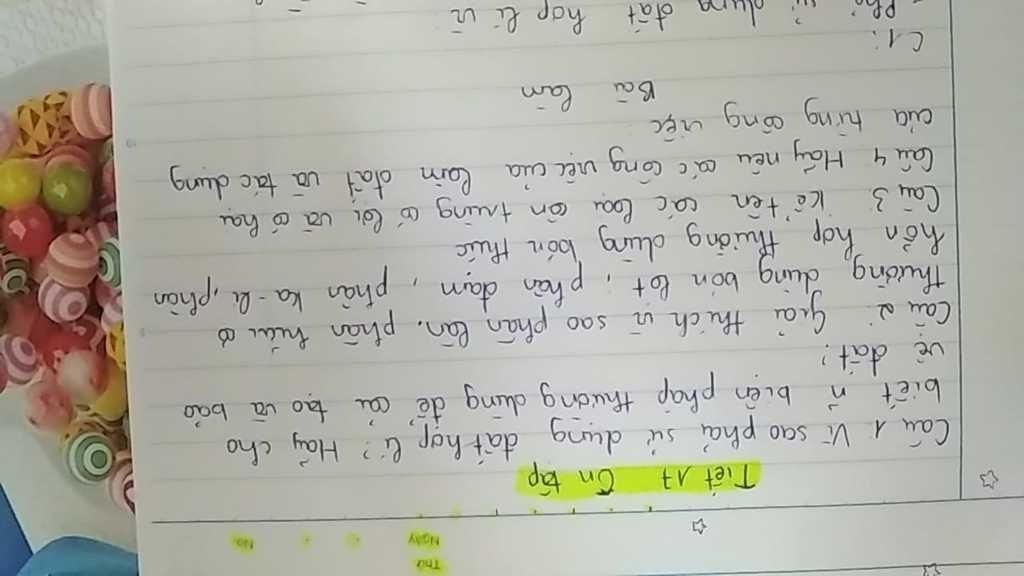 Thứ
Ngày
No.
Tiết 17 Ôn tập
Câu 1 Vì sao phải sử dụng đất hợp lí? Hãy cho
biết n biện pháp thường dùng để cải tạo và bảo
vệ đất?
Câu 2: Giải thích vì sao phân lân, phân hữu cơ
thường dùng bón lót; phân đạm, phân ka-li, phân
hỗn hợp thường dùng bón thúc
Câu 3. Kể tên các loại côn trùng có lợi và có hại
Câu 4 Hãy nêu các công việc của làm đất và tác dụng
của từng công việc
Bài làm
C1:
- Phải sử dụng đất hợp lí vì